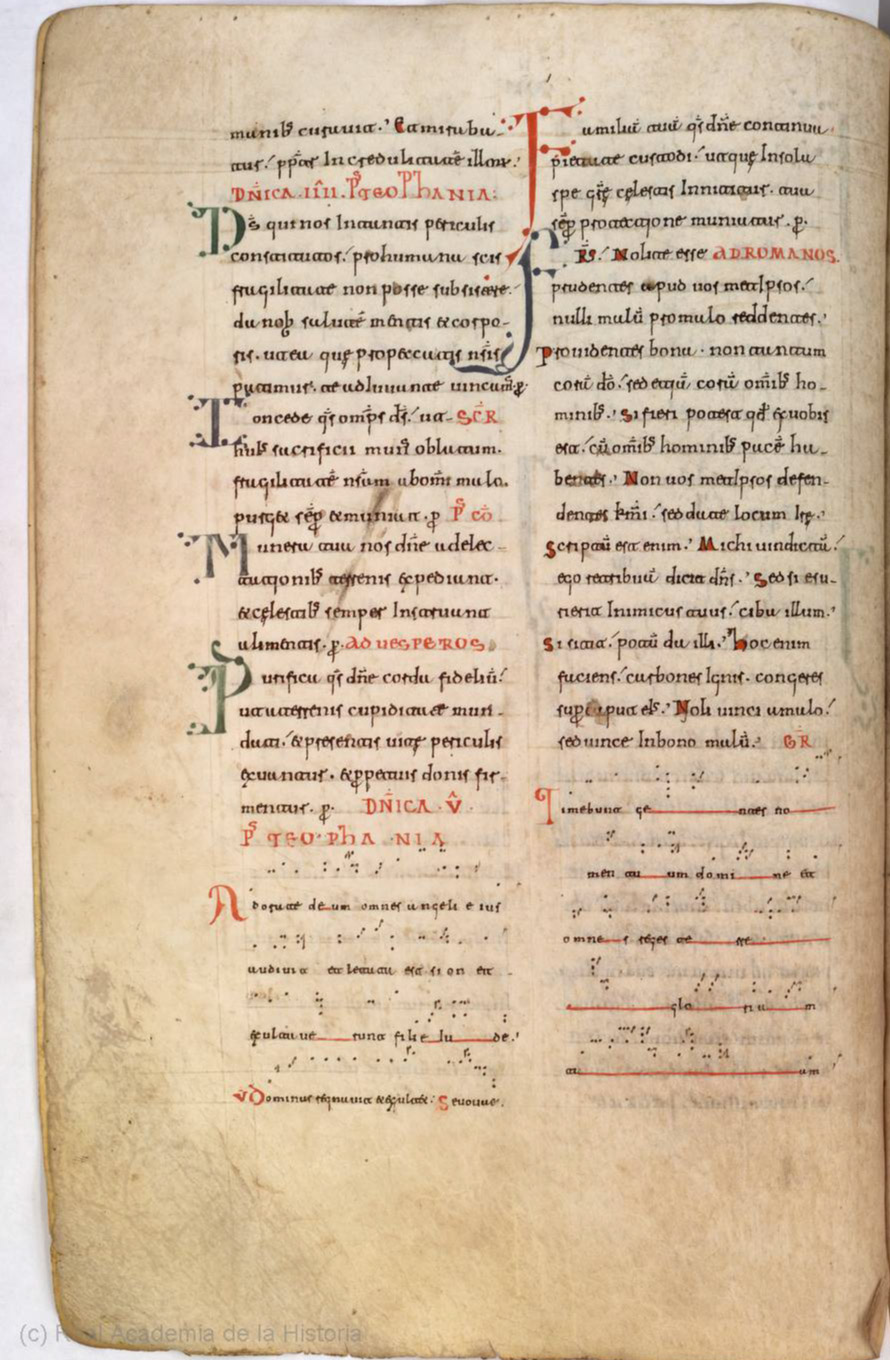 manib' curauit.' Et miraba-
tur.' ppt̄ Incredulitatē illorum.'
DÑICA IIII P̄S TEOPhANIA:
Dś qui nos In tantis periculis
constitutos.' pro humana scis
fragilitate non posse subsistere.'
da nob salutē mentis & corpo-
ris. ut ea que pro peccatis nr̄is
patimur. te adiuuante uincam̄. p̄.
Concede qś omp̄s dś.' ut SCR̄
huiꝰ sacrificii munꝰ oblatum.
fragilitatē nr̄am ab om̄i malo.
purget sēp & muniat. p̄ P̄S CŌ
Munera tua nos dn̄e a delec-
tationib' terrenis expediant.
& celestib' semper Instruant
alimentis. p̄. AD UESPEROS.
Purifica qś dn̄e corda fideliū.'
ut a terrenis cupiditate mun-
data.' & presentis uite periculis
exuantur. & ppetuis donis fir-
mentur. p̄. DÑICA V̂
P̄S TEO PhA NIA
Adorate deum omnes angeli eius
audiuit et letata est sion et
exultaue runt filie Iu de.'
V Dominus regnauit exultet. Seuouae.
Familiā tuā qś dn̄e continua
pietate custodi.' ut que In sola
spe grē celestis Innititur. tua
sēp protectione muniatur. p̄.
FR̄S.' Nolite esse AD ROMANOS.
prudentes apud uosmetIpsos.'
nulli malū pro malo reddentes.'
Prouidentes bona. non tantum
corā dō.' sed etiā corā om̄ib' ho-
minib'.' Si fieri potest qd̄ ex uobis
est.' cū om̄ib' hominib' pacē ha-
bentes.' Non uosmetIpsos defen-
dentes km̄i.' sed date locum Ire.'
Scriptū est enim.' Michi uindictā.'
ego retribuā dicit dn̄s.' Sed si esu-
rierit Inimicus tuus.' ciba illum.'
Si sitit.' potū da illi.' Hoc enim
faciens.' carbones Ignis. congeres
sup caput eiꝰ.' Noli uinci a malo.'
sed uince In bono malū.' GR̄
Timebunt ge ntes no
men tu um domi ne et
omne s reges te rre
glo ria m
tu am
(c) Real Academia de la Historia